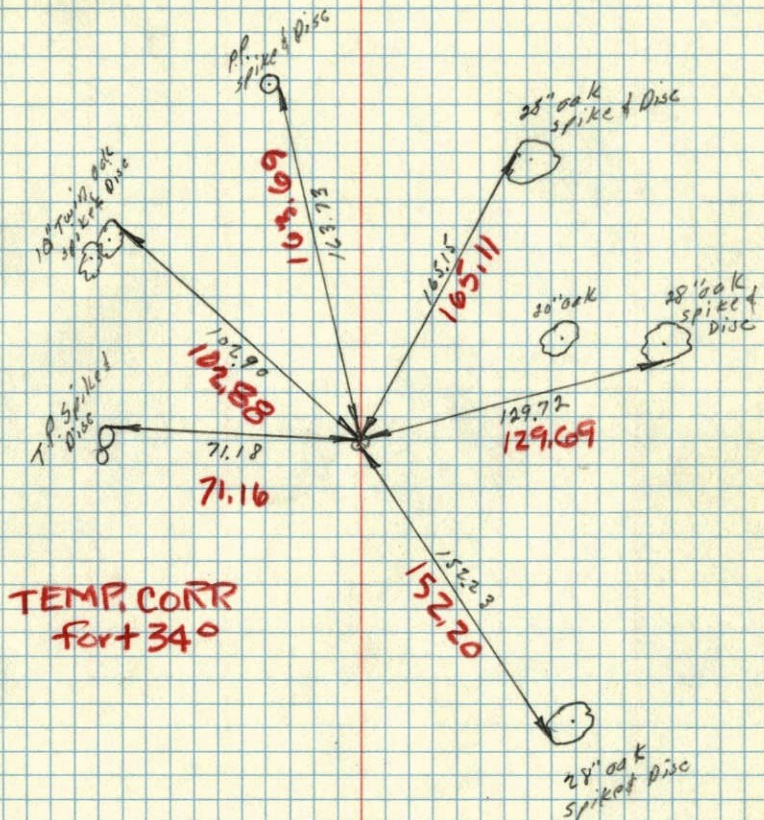 P.P.
spike & Disc
oak
spike & Disc
10" Twin oak
spike & Disc
163.69
163.73
165.15
165.11
20" oak
28" oak
spike &
Disc
102.90
102.88
T.P. Spike &
Disc
71.18
71.16
129.72
129.69
152.23
152.20
TEMP. CORR
for + 34°
28" oak
spike & Disc